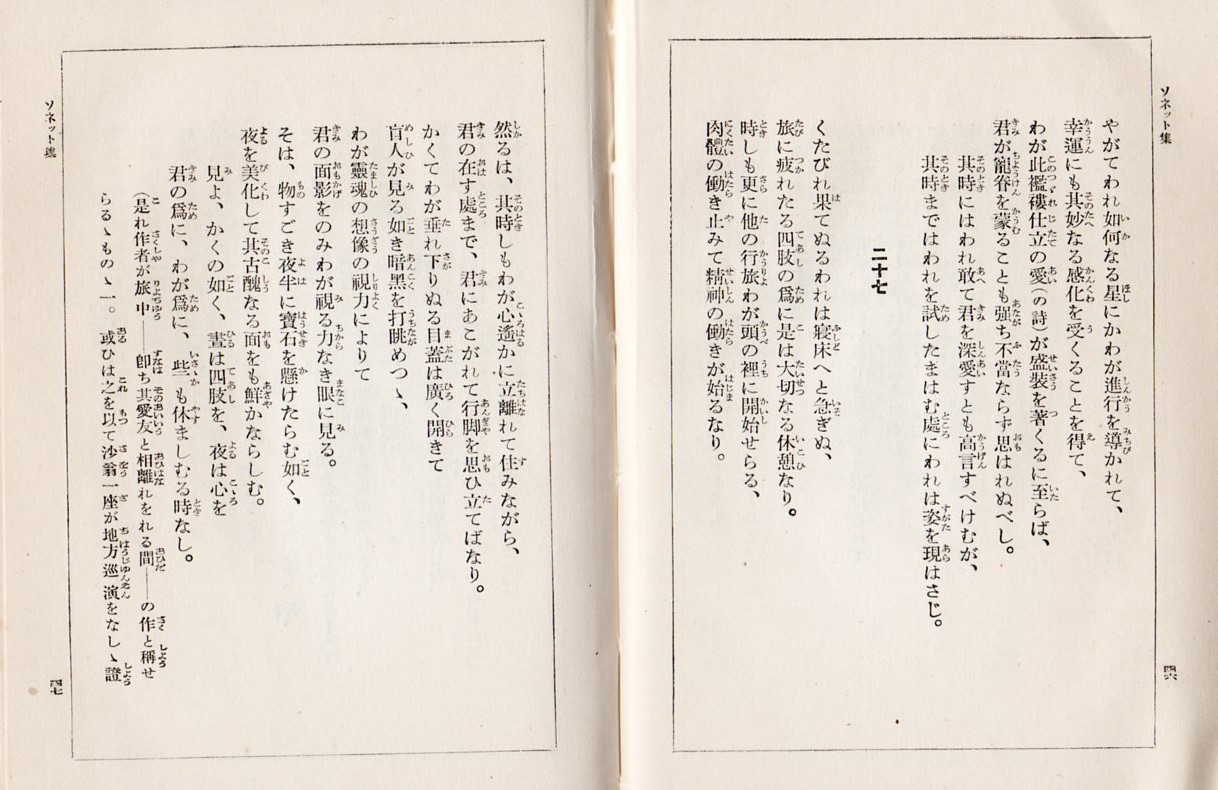 ソネット集
やがてわれ如何なる星にかわが進行を導かれて、
幸運にも其妙なる感化を受くることを得て、
わが此襤褸仕立の愛(の詩)が盛装を著くるに至らば、
君が寵眷を蒙ることも強ち不當ならず思はれぬべし。
其時にはわれ敢て君を深愛すとも高言すべけむが、
其時まではわれを試したまはむ處にわれは姿を現はさじ。
二十七
くたびれ果てぬるわれは寢床へと急ぎぬ、
旅に疲れたる四肢の爲に是は大切なる休憩なり。
時しも更に他の行旅わが頭の裡に開始せらる、
肉體の働き止みて精神の働きが始るなり。
四六
然るは、其時しもわが心遙かに立離れて住みながら、
君の在す處まで、君にあこがれて行脚を思ひ立てばなり。
かくてわが垂れ下りぬる目蓋は廣く開きて
盲人が見る如き暗黑を打眺めつゝ、
わが靈魂の想像の視力によりて
君の面影をのみわが視る力なき眼に見る。
そは、物すごき夜半に寶石を懸けたらむ如く、
夜を美化して其古醜なる面をも鮮かならしむ。
見よ、かくの如く、晝は四肢を、夜は心を
君の爲に、わが爲に、些も休ましむる時なし。
(是れ作者が旅中——卽ち其愛友と相離れをれる間——の作と稱せ
らるゝものゝ一。或ひは之を以て沙翁一座が地方巡演をなしゝ證
ソネット集
四七